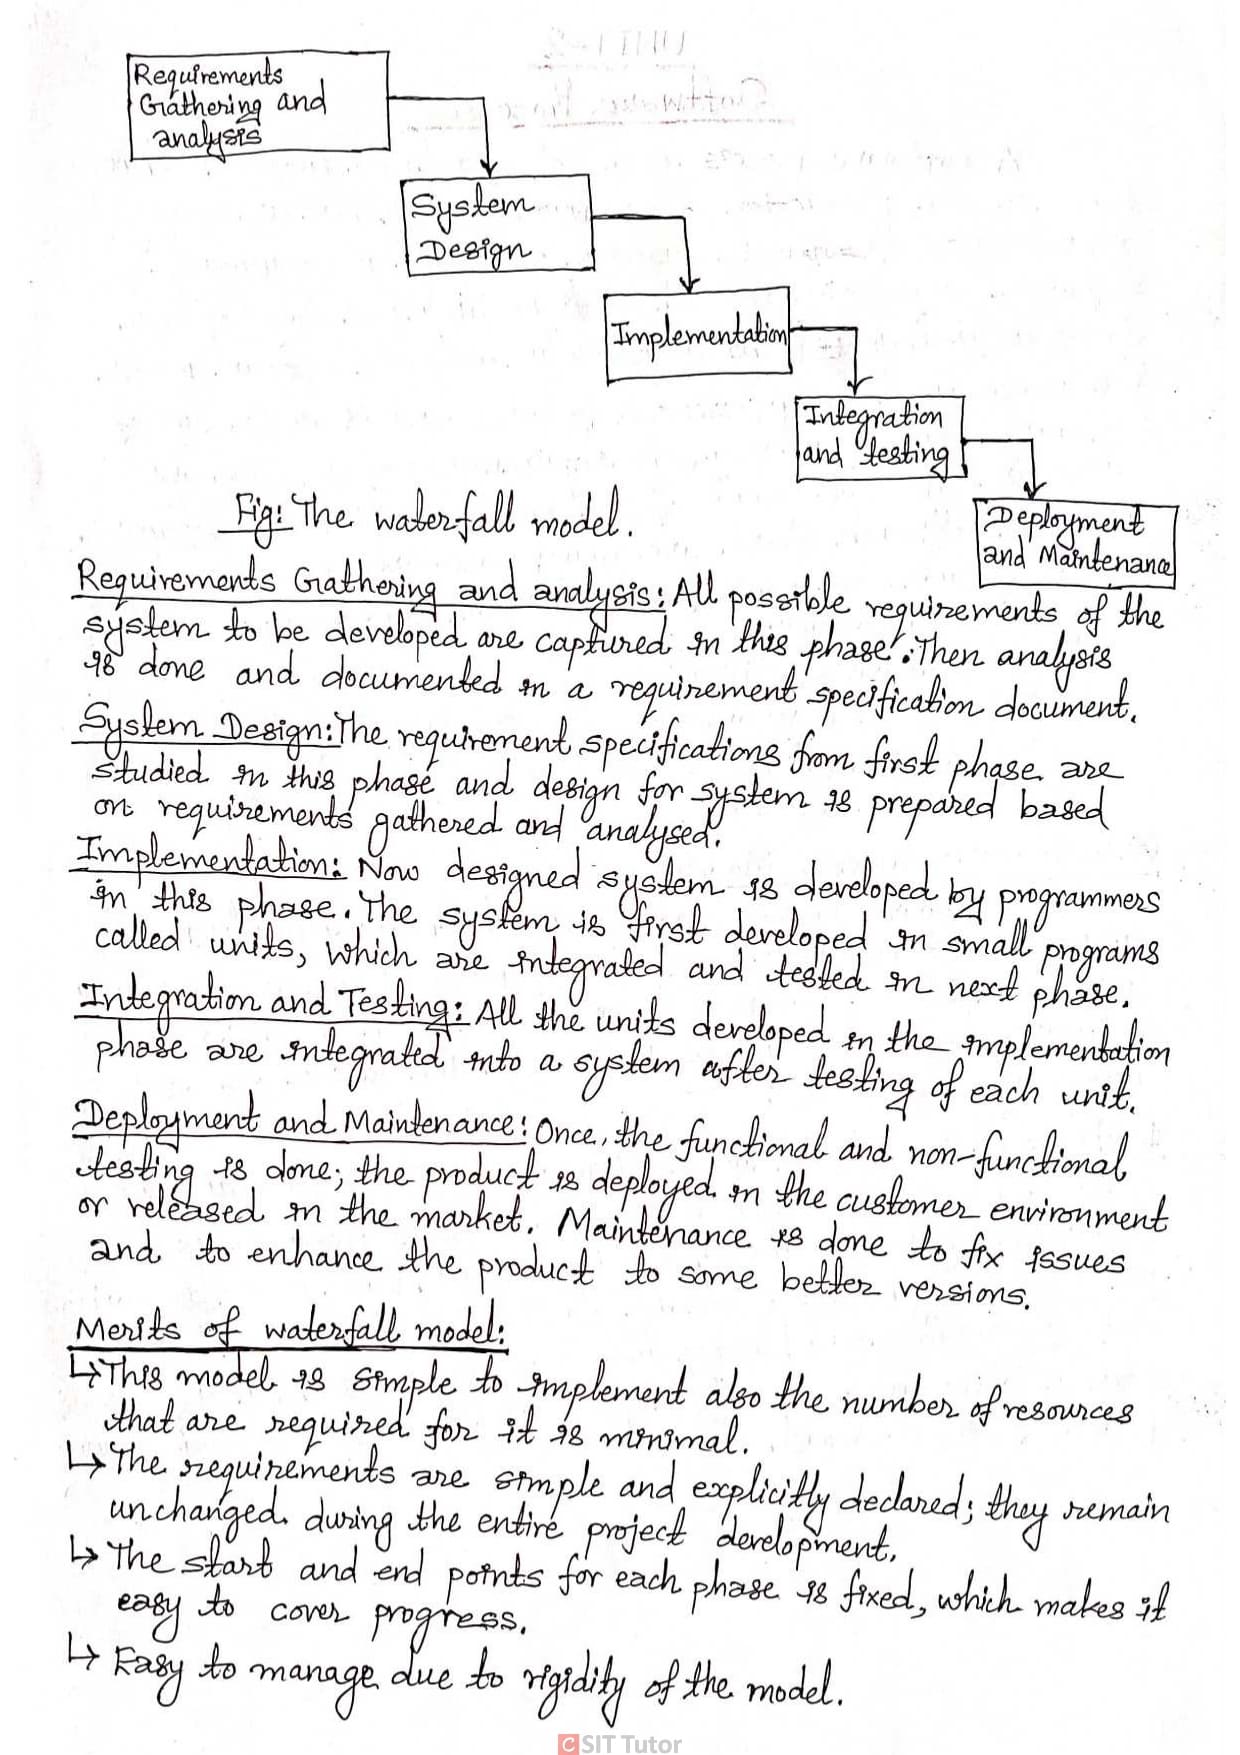 Requirements
Gathering and
analysis
System
Design
Implementation
Integration
and testing
Deployment
and Maintenance
Fig: The waterfall model.
Requirements Gathering and analysis: All possible requirements of the
system to be developed are captured in this phase. Then analysis
is done and documented in a requirement specification document.
System Design: The requirement specifications from first phase are
studied in this phase and design for system is prepared based
on requirements gathered and analysed.
Implementation: Now designed system is developed by programmers
in this phase. The system is first developed in small programs
called units, which are integrated and tested in next phase.
Integration and Testing: All the units developed in the implementation
phase are integrated into a system after testing of each unit.
Deployment and Maintenance: Once, the functional and non-functional
testing is done; the product is deployed in the customer environment
or released in the market. Maintenance is done to fix issues
and to enhance the product to some better versions.
Merits of waterfall model:
↳ This model is simple to implement also the number of resources
that are required for it is minimal.
↳ The requirements are simple and explicitly declared; they remain
unchanged during the entire project development.
↳ The start and end points for each phase is fixed, which makes it
easy to cover progress.
↳ Easy to manage due to rigidity of the model.
CSIT Tutor